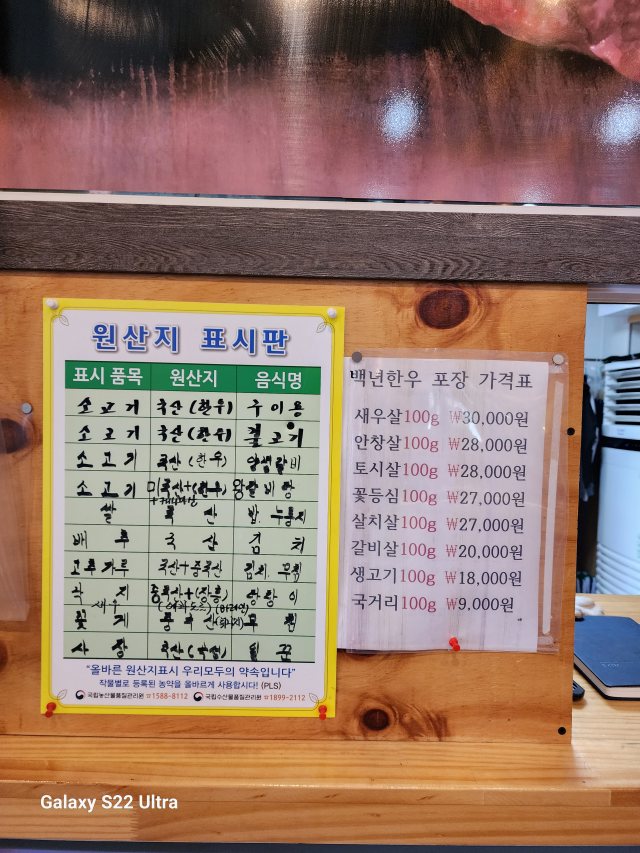 원산지 표시판
표시 품목 원산지 음식명
소고기 국산(한우) 구이용
소고기 국산(한우) 불고기
소고기 국산(한우) 양생갈비
소고기 미국산+(한우) 왕갈비탕
쌀 국산 밥.누룽지
배추 국산 김치
고추가루 국산+중국산 김치.무침
낙지 중국산+(장흥) 탕탕이
새우
꽃게 중국산
국산
"올바른 원산지표시 우리모두의 약속입니다"
작물별로 등록된 농약을 올바르게 사용합시다! (PLS)
국립농산물품질관리원 ☎1588-8112 국립수산물품질관리원 ☎1899-2112
백년한우 포장 가격표
새우살100g ₩30,000원
안창살100g ₩28,000원
토시살100g ₩28,000원
꽃등심100g ₩27,000원
살치살100g ₩27,000원
갈비살100g ₩20,000원
생고기100g ₩18,000원
국거리100g ₩9,000원
Galaxy S22 Ultra